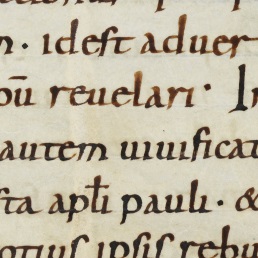 n · idest aduer
reuelari · In
autem uiuificat
sta apłi pauli · &
otius ipsis rebu